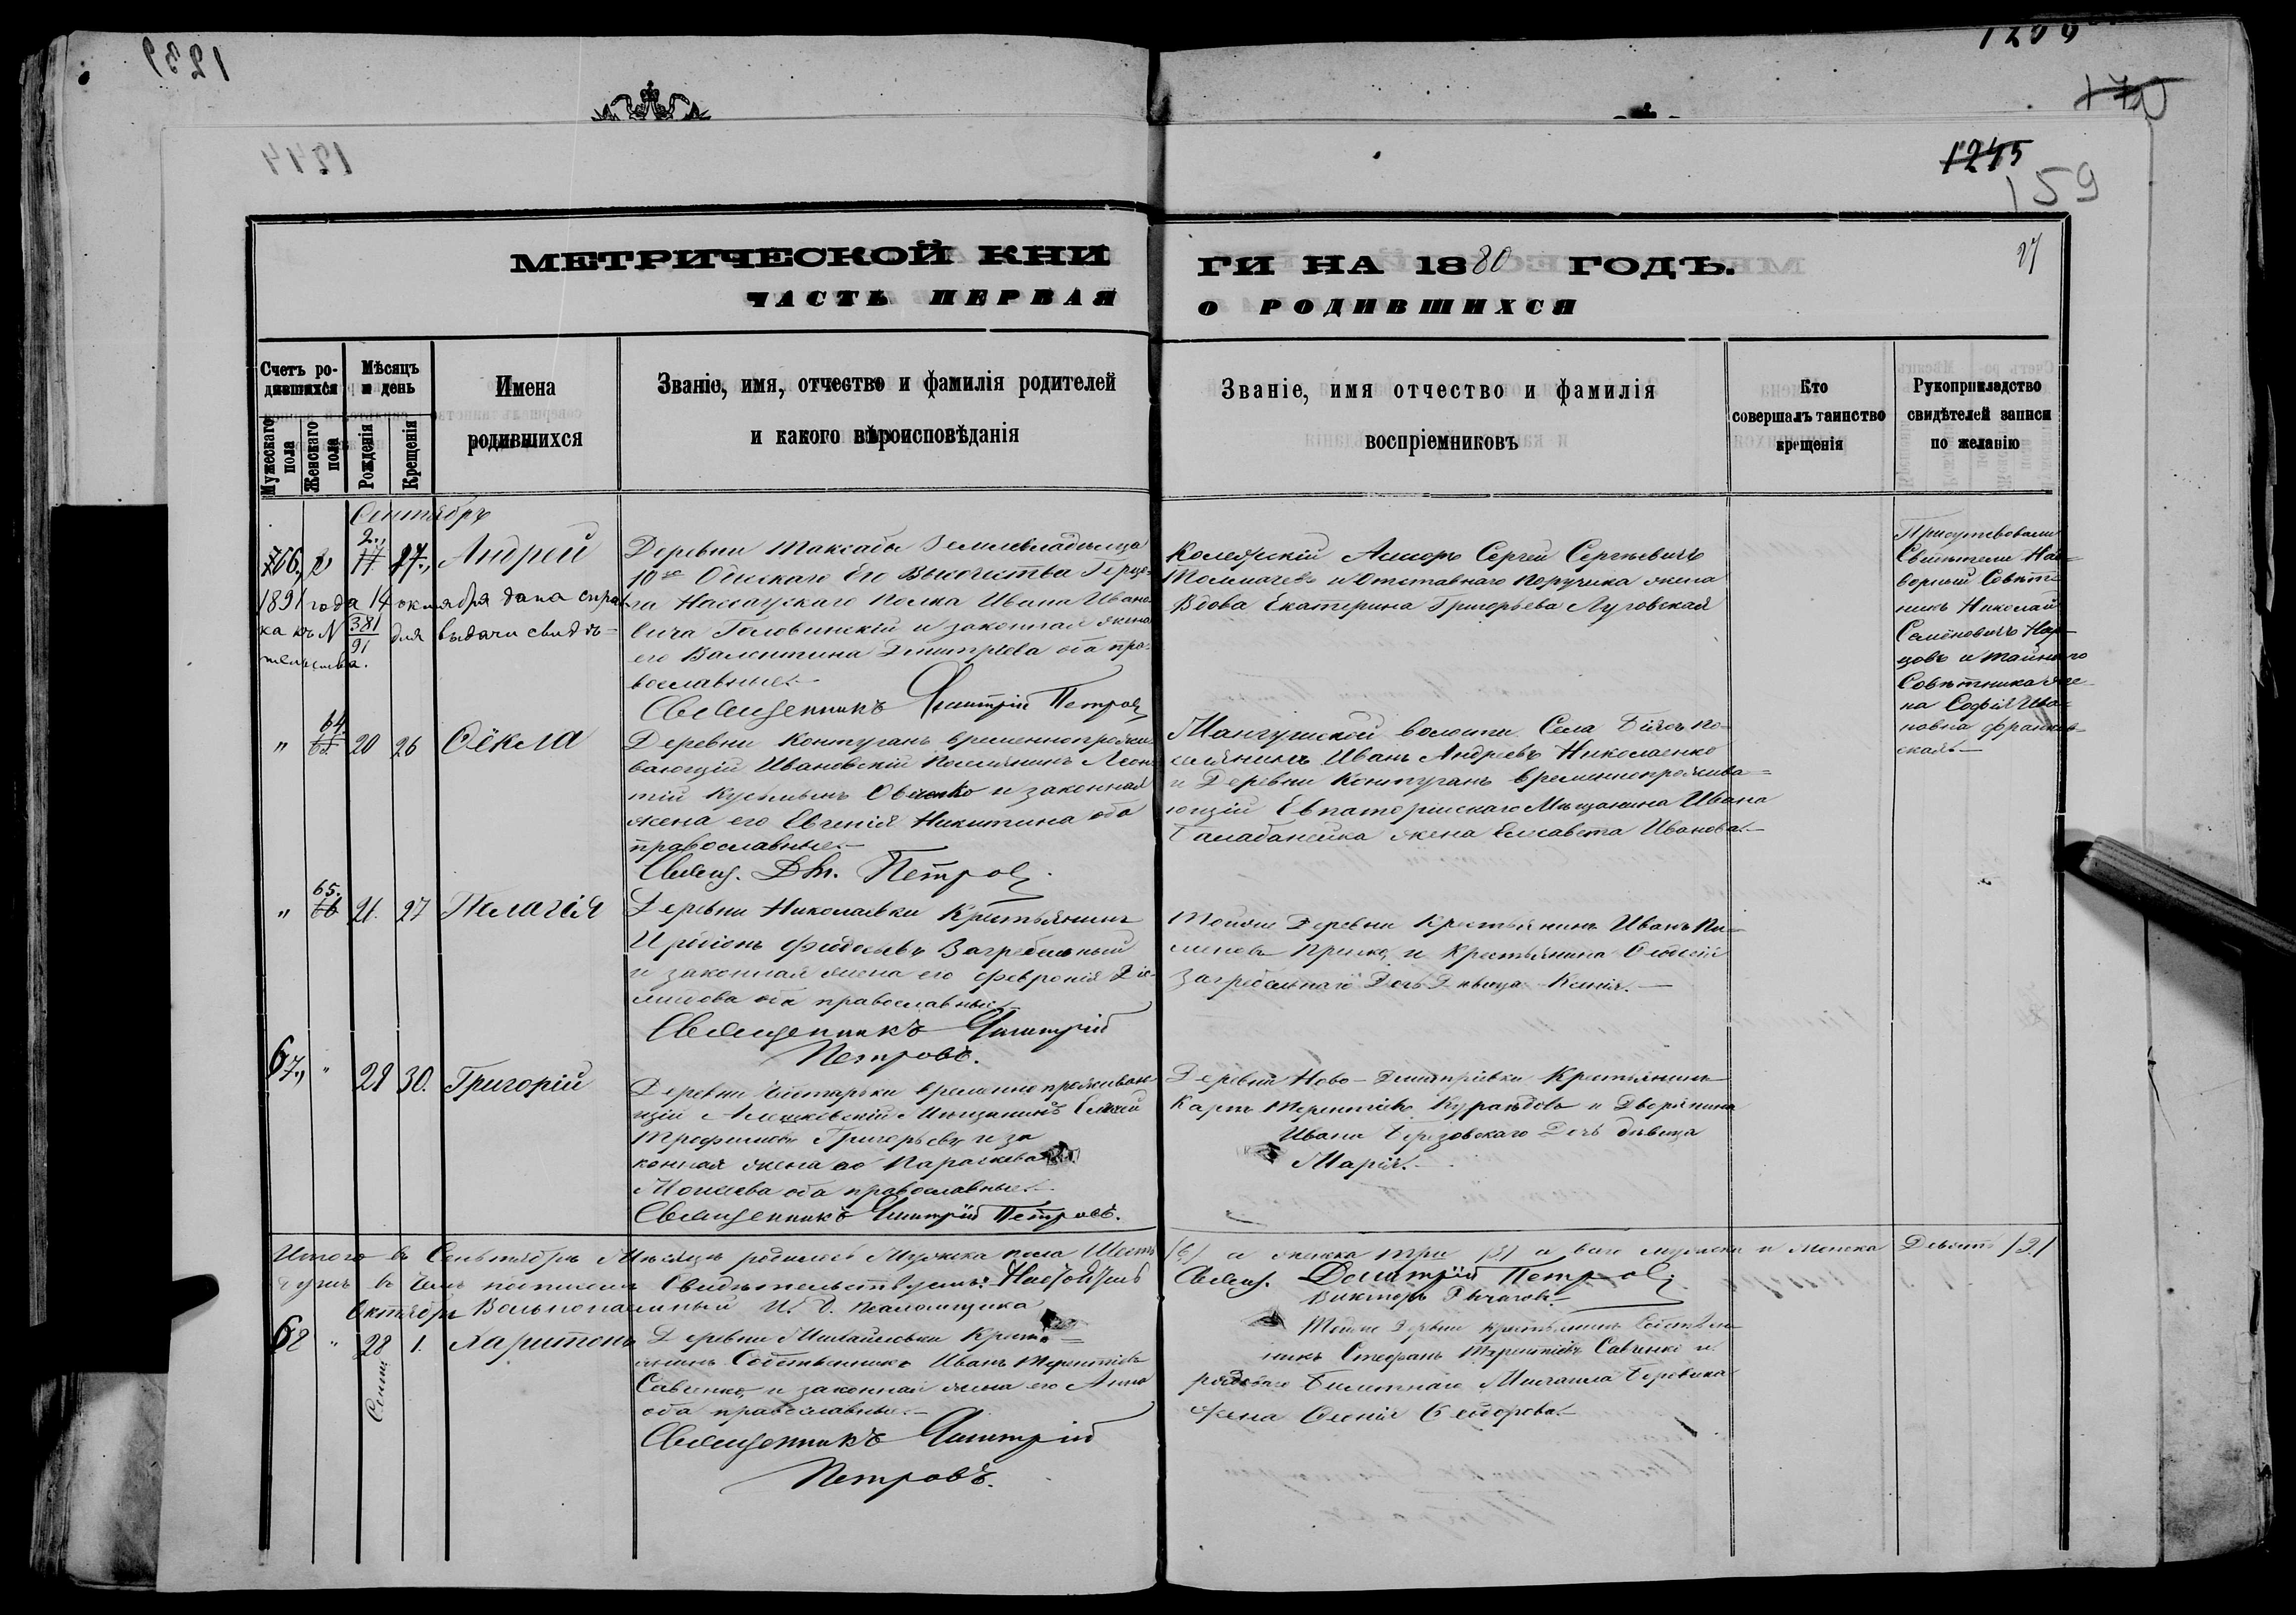 1239
1244
1245
159
МЕТРИЧЕСКОЙ КНИ
ГИ НА 1880 ГОДЪ.
27
ЧАСТЬ ПЕРВАЯ
О РОДИВШИХСЯ
Счетъ ро-
дившихся
Мужескаго пола
Женскаго пола
Мѣсяцъ и день
Рожденія
Крещенія
Имена
родившихся
Званіе, имя, отчество и фамилія родителей
и какого вѣроисповѣданія
Званіе, имя отчество и фамилія
воспріемниковъ
Кто
совершалъ таинство
крещенія
Рукоприкладство
свидѣтелей записи
по желанію
Сентябрь
66. 2. 17. Андрей
1891 года 14 октября дана справ-
ка къ № 381/91 для выдачи свидѣ-
тельства.
Деревни Таксабы Землевладельца
10го Одескаго Его Высочества Герцо-
га Нассаускаго полка Ивана Ивано-
вича Головинскій и законная жена
его Валентина Дмитріева оба пра-
вославные.
Священникъ Дмитрій Петровъ
Колежскій Асесоръ Сергей Сергѣевичъ
Толмачевъ и Отставнаго Поручика жена
Вдова Екатерина Григорьева Луговская
Присутствовали
Свидетели На-
дворный Совѣт-
никъ Николай
Семёновичъ
и Тайнаго
Совѣтника же-
на Софія Ива-
новна Франков-
ская.
" 64. 20 26 Ѳёкла
Деревни Контуганъ временнопрожи-
вающій Ивановскій Поселянинъ Леон-
тій Кузьминъ Овченко и законная
жена его Евгенія Никитина оба
православные.
Свящ. Дм. Петровъ
Мангушской волости Села Біязъ по-
селянинъ Иванъ Андреевъ Николаенко
и Деревни Контуганъ временнопрожива-
ющій Евпаторискаго Мѣщанина Ивана
жена Елисавета Иванова.
" 65. 21. 27 Пелагія
Деревни Николаевки Крестьянинъ
Федосеевъ Загребельный
и законная жена его Февронія Діо-
мидова оба православные
Священникъ Дмитрій
Петровъ.
Тойже Деревни Крестьянинъ Иванъ
и Крестьянина
Загребельнаго Дочь Дѣвица Ксенія.
67., " 28 30. Григорій
Деревни временно прожива-
щій Алешковскій Мѣщанинъ
Трофимовъ Григорьевъ и за
конная жена его Параскева
Моисеева оба православные.
Священникъ Дмитрій Петровъ.
Деревни Ново-Дмитріевки Крестьянинъ
Карпъ Терентіевъ и Дворянина
Ивана Березовскаго Дочь дѣвица
Марія.
Итого въ Сентябрѣ Мѣсяцѣ родилось Мужеска пола Шесть
(6) а женска три (3) а всего мужска и женска Девять
душъ въ чемъ подписомъ Свидѣтельствуемъ: Настоятель
Свящ. Дмитрій Петровъ
Октябрь Вольнонаемный И. д. Псаломщика
Викторъ
68 " 28 1. Харитонъ
Сент.
Деревни Михайловки Кресть-
янинъ Собственникъ Иванъ Терентіевъ
Савченко и законная жена его Анна
оба православные.
Священникъ Дмитрій
Петровъ.
Тойже Деревни крестьянинъ Собствен-
никъ Стефанъ Терентіевъ Савченко и
рядоваго Билетнаго Михаила Боровика
жена Ксенія Ѳедорова.